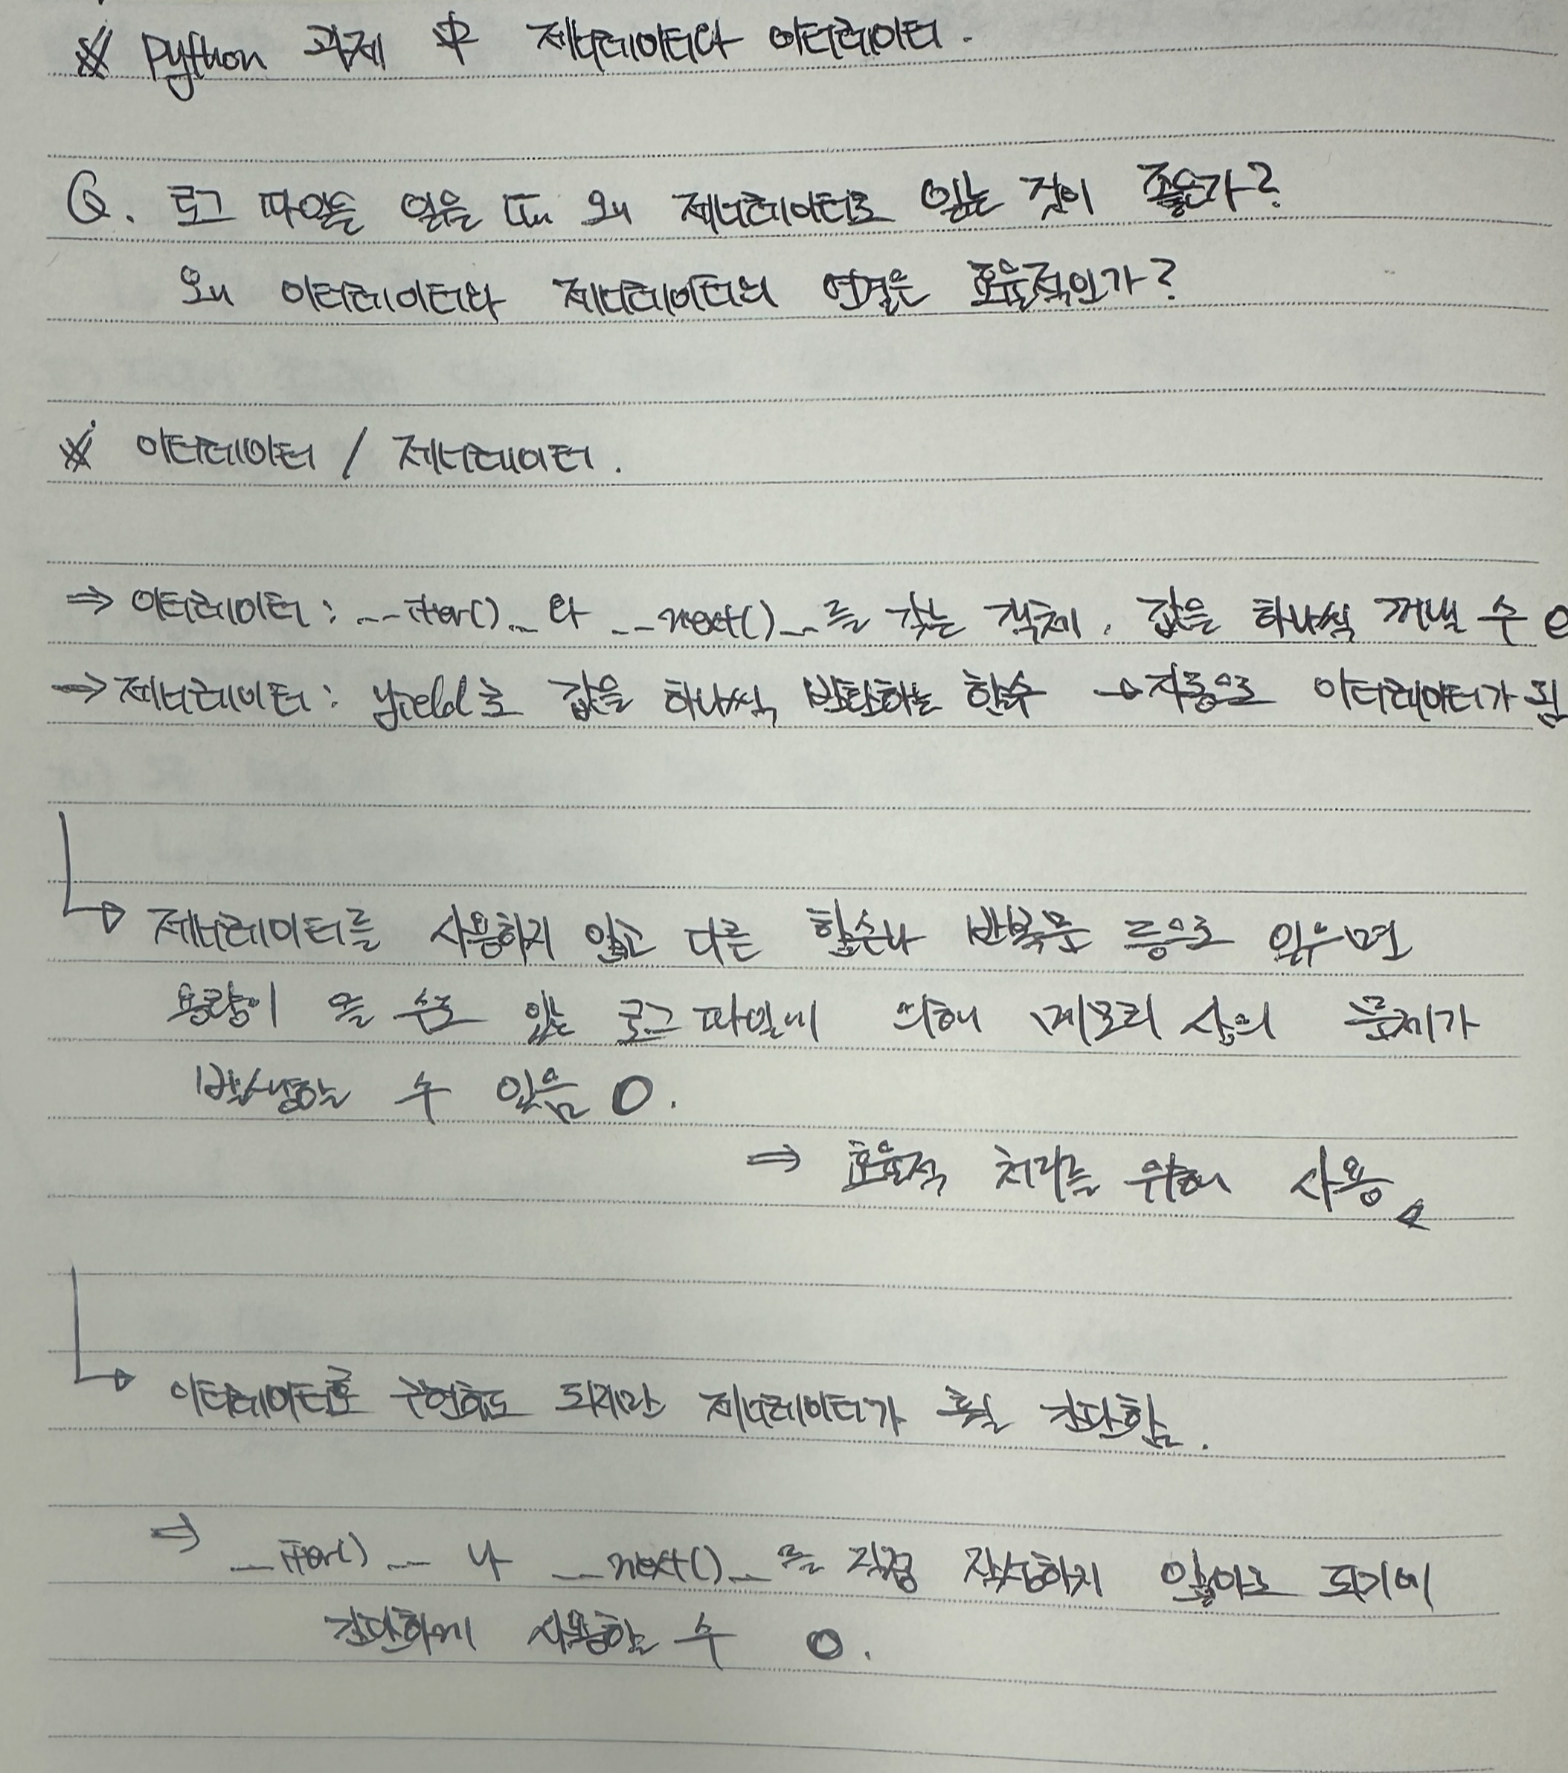 ※ Python 과제 中 제너레이터와 이터레이터.
Q. 로그 파일을 읽을 때 왜 제너레이터로 읽는 것이 좋은가?
왜 이터레이터와 제너레이터의 연결은 효율적인가?
※ 이터레이터 / 제너레이터.
⇒ 이터레이터 : __iter()__와 __next()__를 갖는 객체. 값을 하나씩 꺼낼 수 O
⇒ 제너레이터 : yield로 값을 하나씩 반환하는 함수 → 자동으로 이터레이터가 됨
↳ 제너레이터를 사용하지 않고 다른 함수나 반복문 등으로 읽으면
용량이 클 수도 있는 로그파일에 의해 메모리 상의 문제가
발생하는 수 있음 O.
⇒ 효율적 처리를 위해 사용
↳ 이터레이터로 구현해도 되지만 제너레이터가 훨씬 간단함.
⇒ __iter()__나 __next()__를 직접 작성하지 않아도 되기에
간단하게 사용할 수 O.